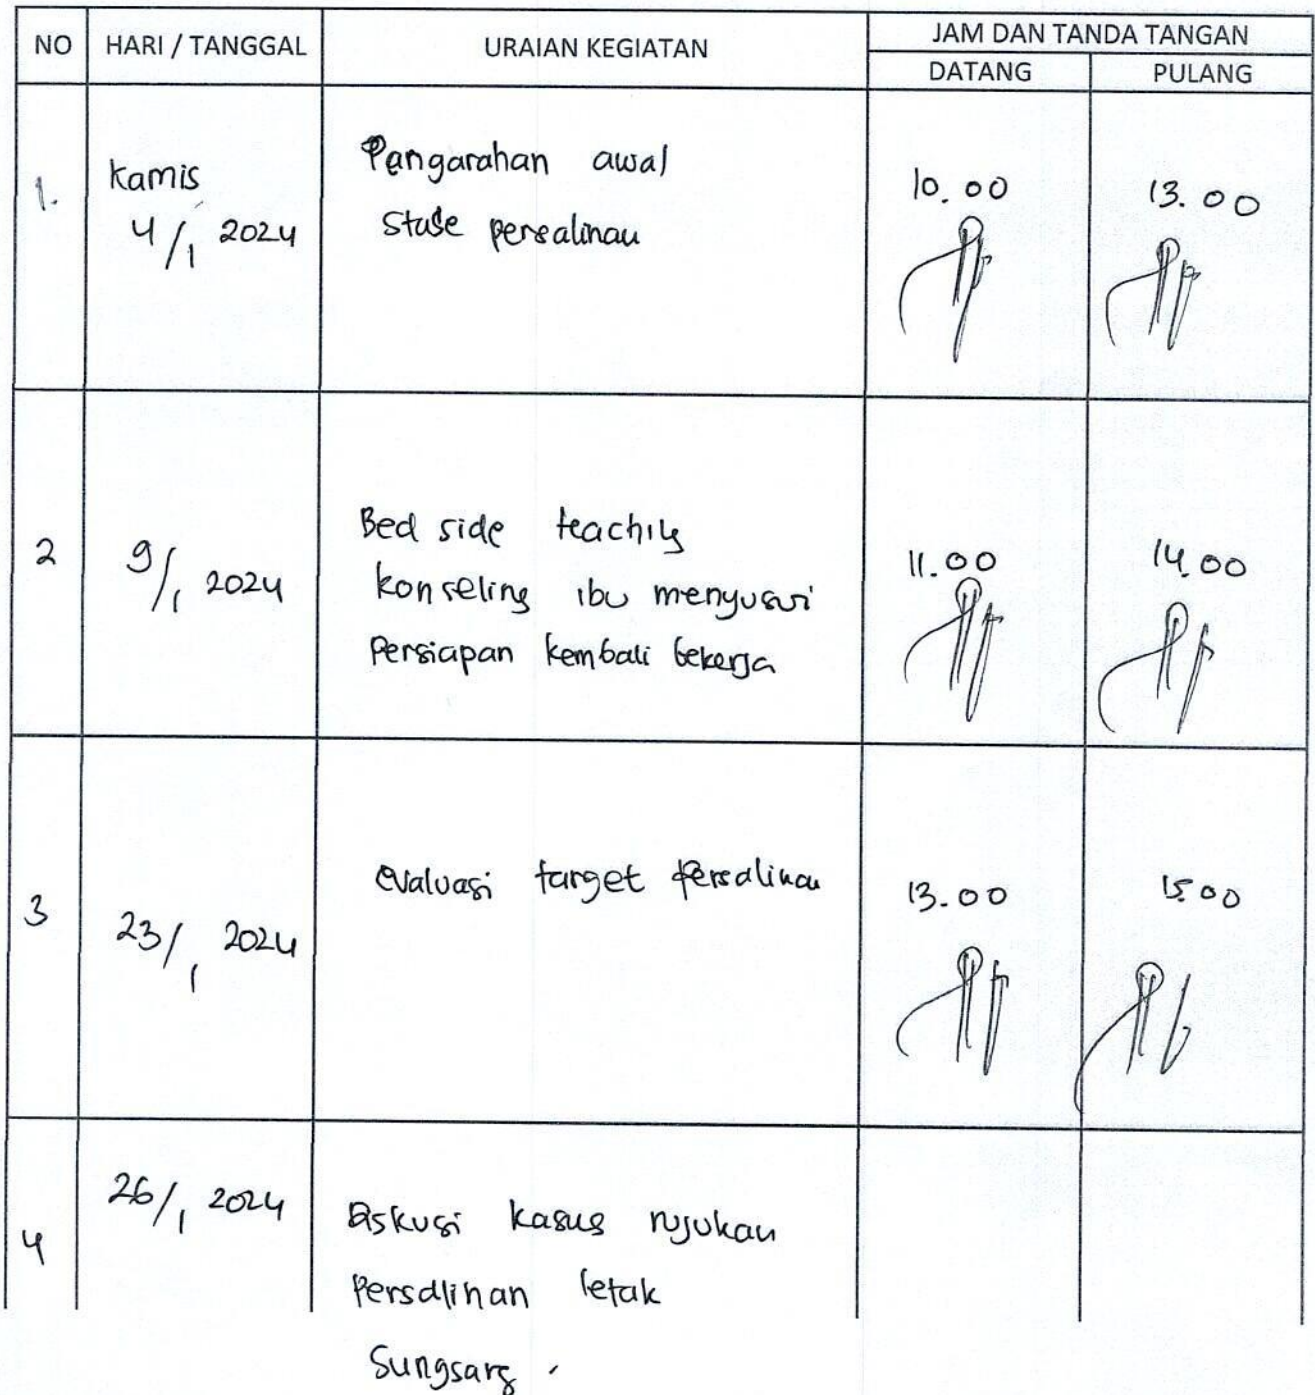 NO HARI / TANGGAL URAIAN KEGIATAN JAM DAN TANDA TANGAN
DATANG PULANG
1. Kamis 4/1 2024 Pengarahan awal 10.00 13.00
stase persalinan
2 9/1 2024 Bed side teaching 11.00 14.00
konseling ibu menyusui
Persiapan kembali bekerja
3 23/1 2024 evaluasi target persalinan 13.00 15.00
4 26/1 2024 Diskusi kasus rujukan
Persalinan letak
Sungsang.